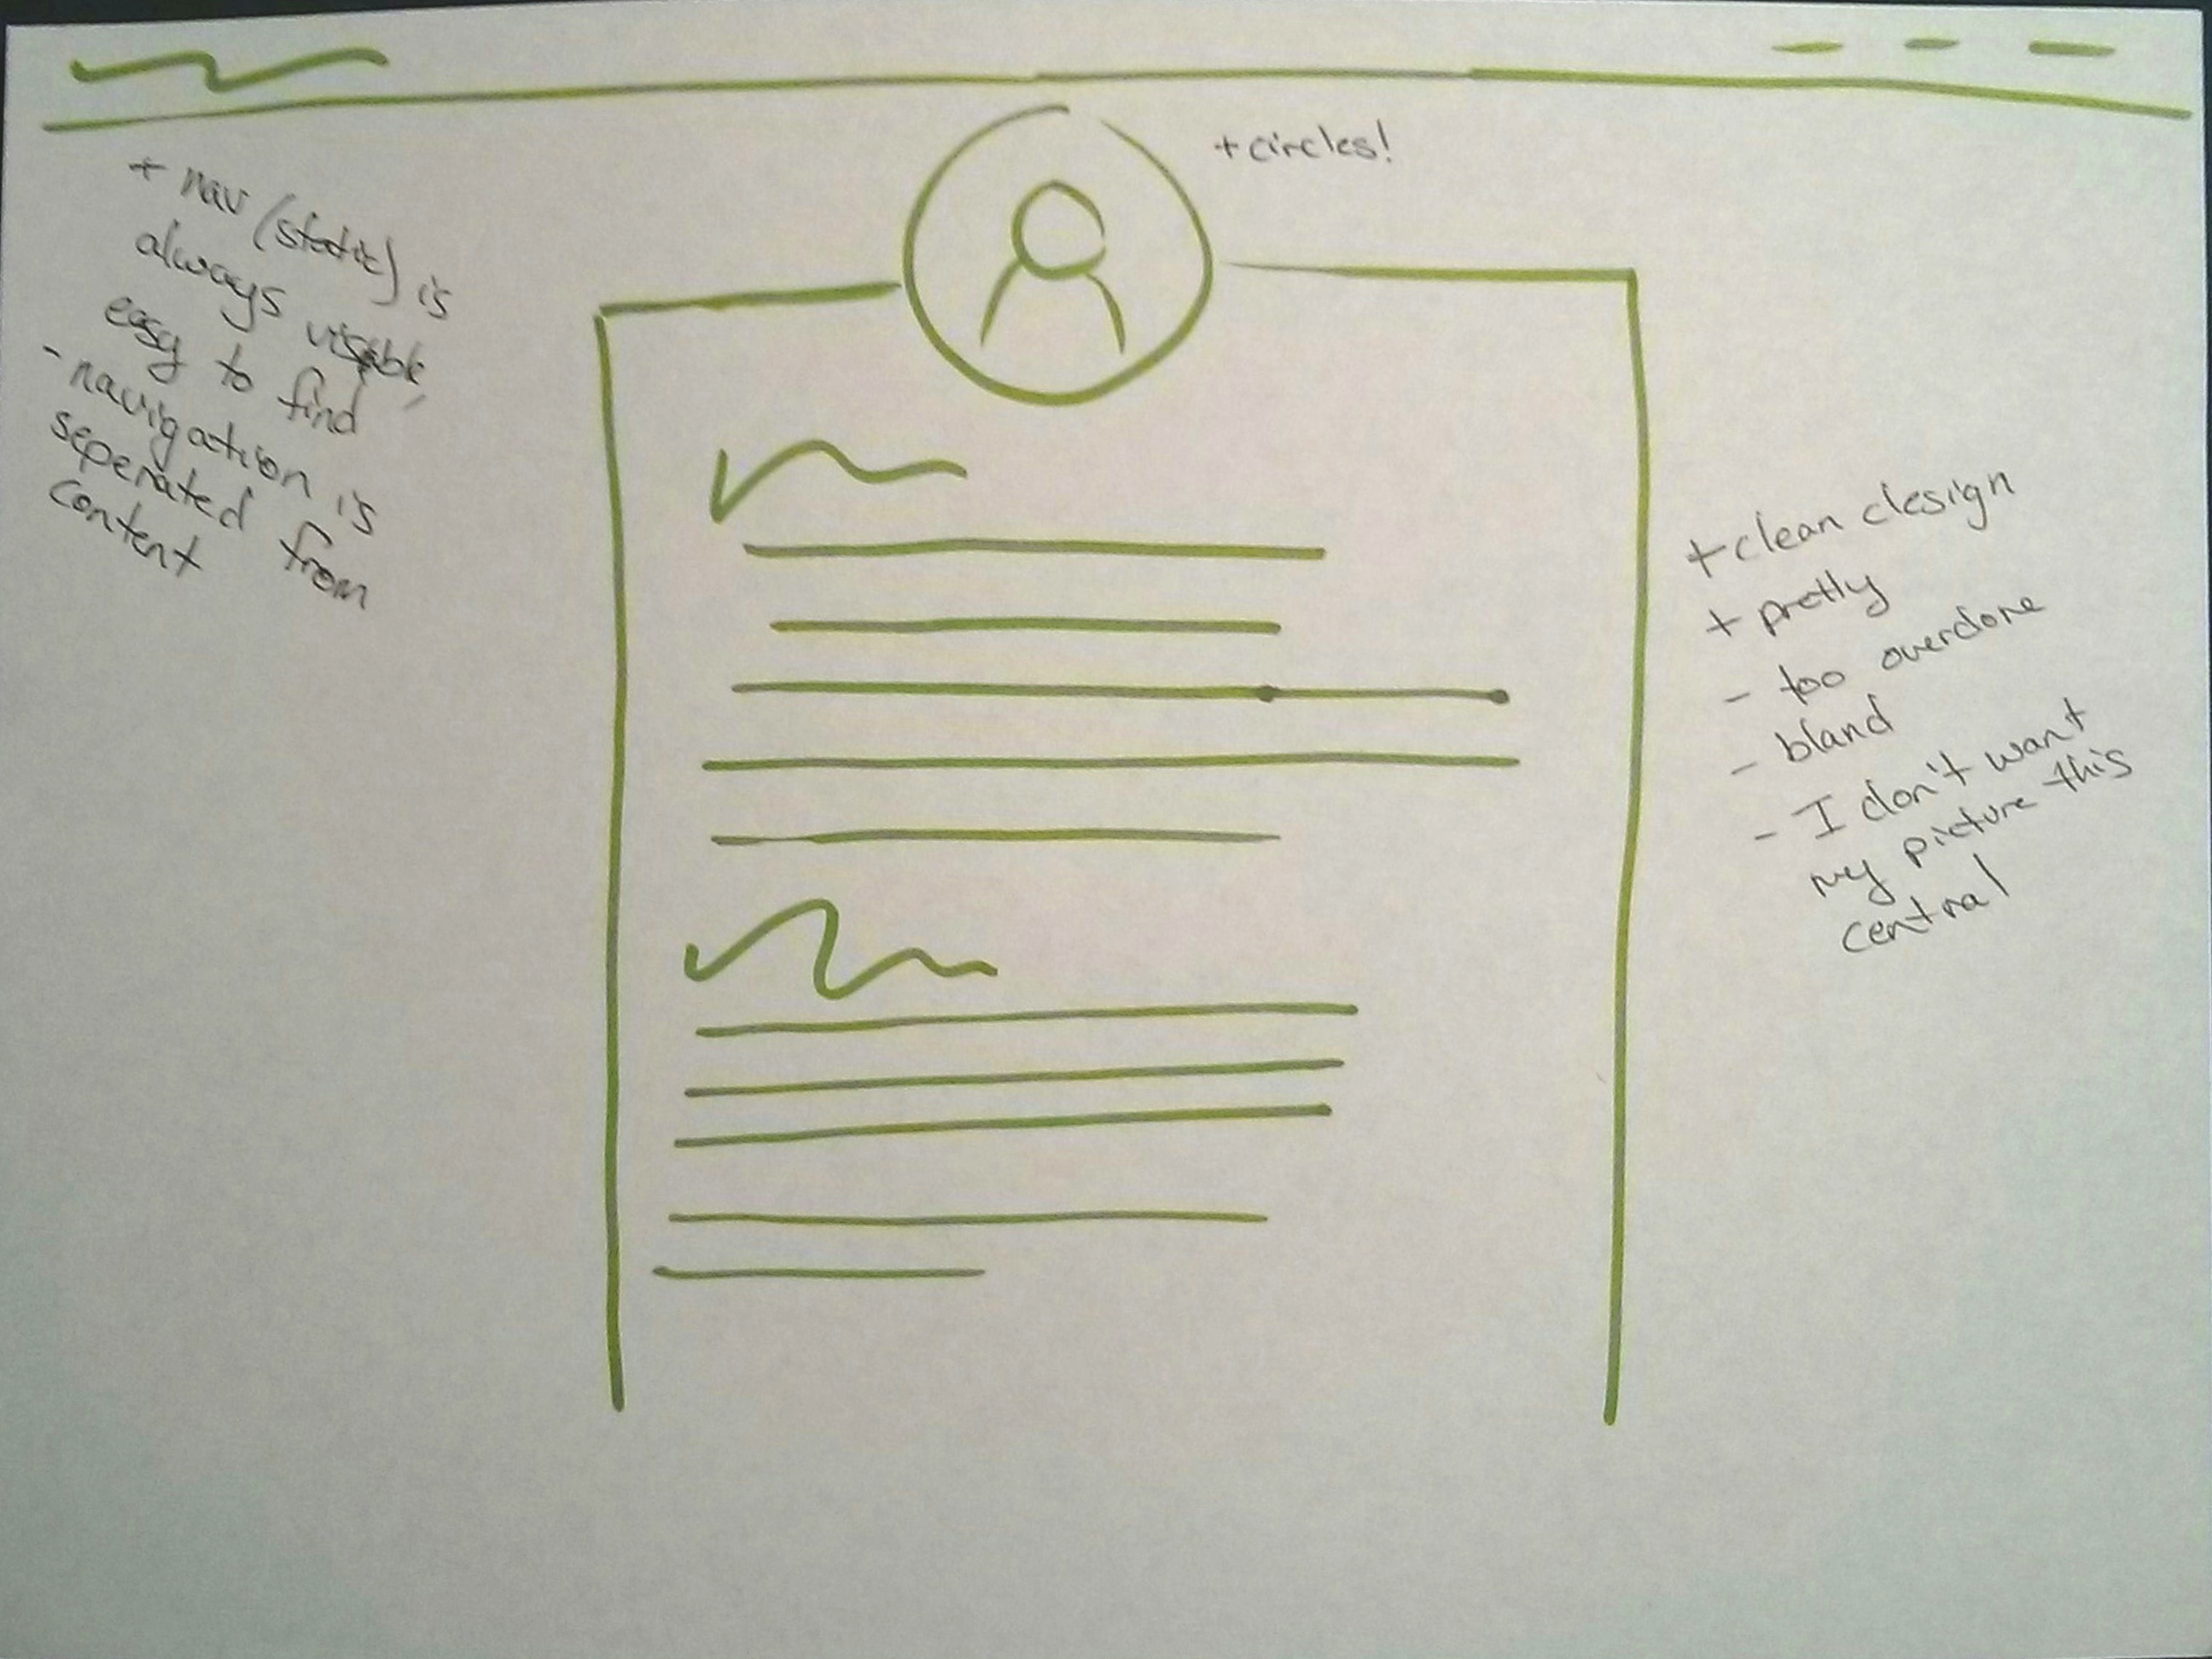 + circles!
+ nav (static) is
always visible,
easy to find
- navigation is
seperated from
content
+ clean design
+ pretty
- too overdone
- bland
- I don't want
my picture this
central